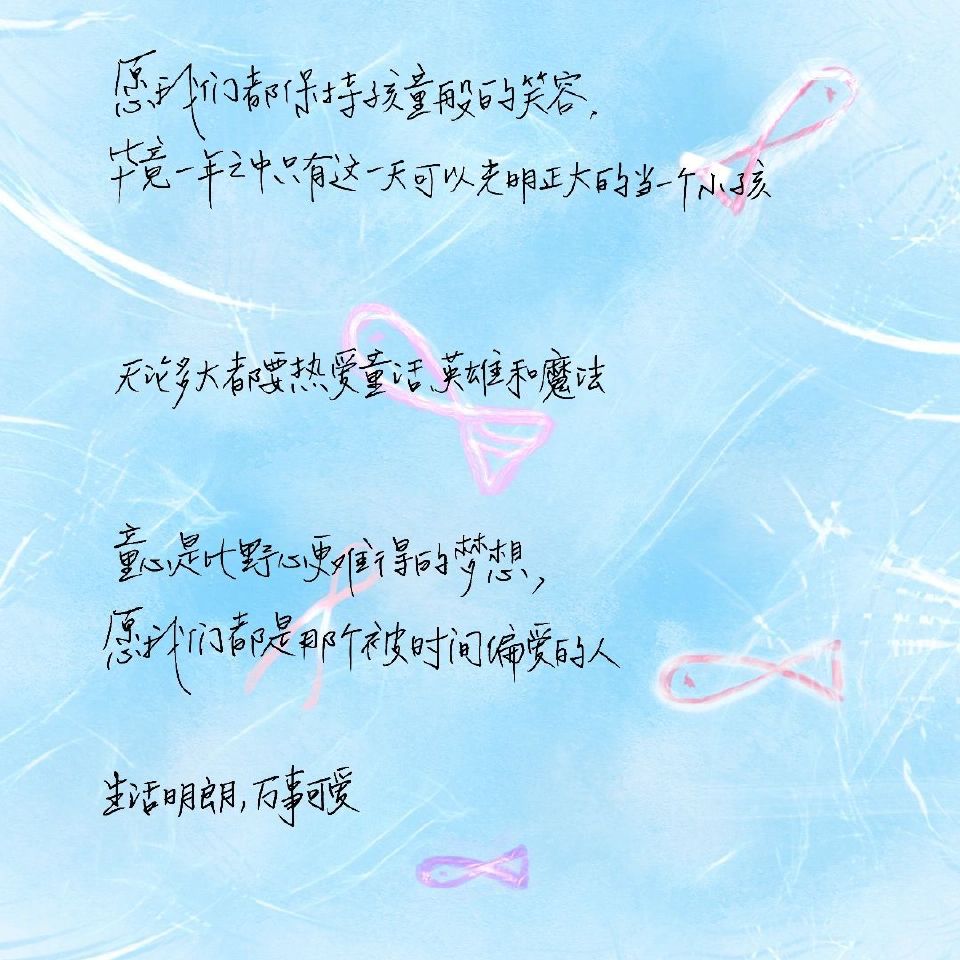 愿我们都保持孩童般的笑容,
毕竟一年之中只有这一天可以光明正大的当一个小孩
无论多大都要热爱童话、英雄和魔法
童心是比野心更难得的梦想,
愿我们都是那个被时间偏爱的人
生活明朗,万事可爱